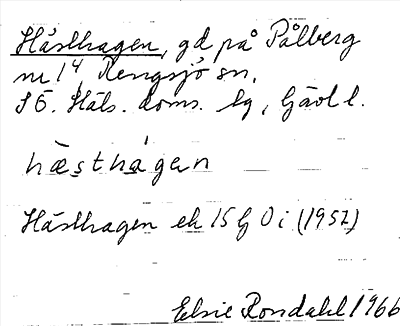 Hästhagen, gd på Pålberg
nr 1⁴, Rengsjö sn,
S Ö. Häls. doms. lg, Gävl l.
hæsthagen
Hästhagen ek 15 G 0 i (1957)
Elsie Rondahl 1966